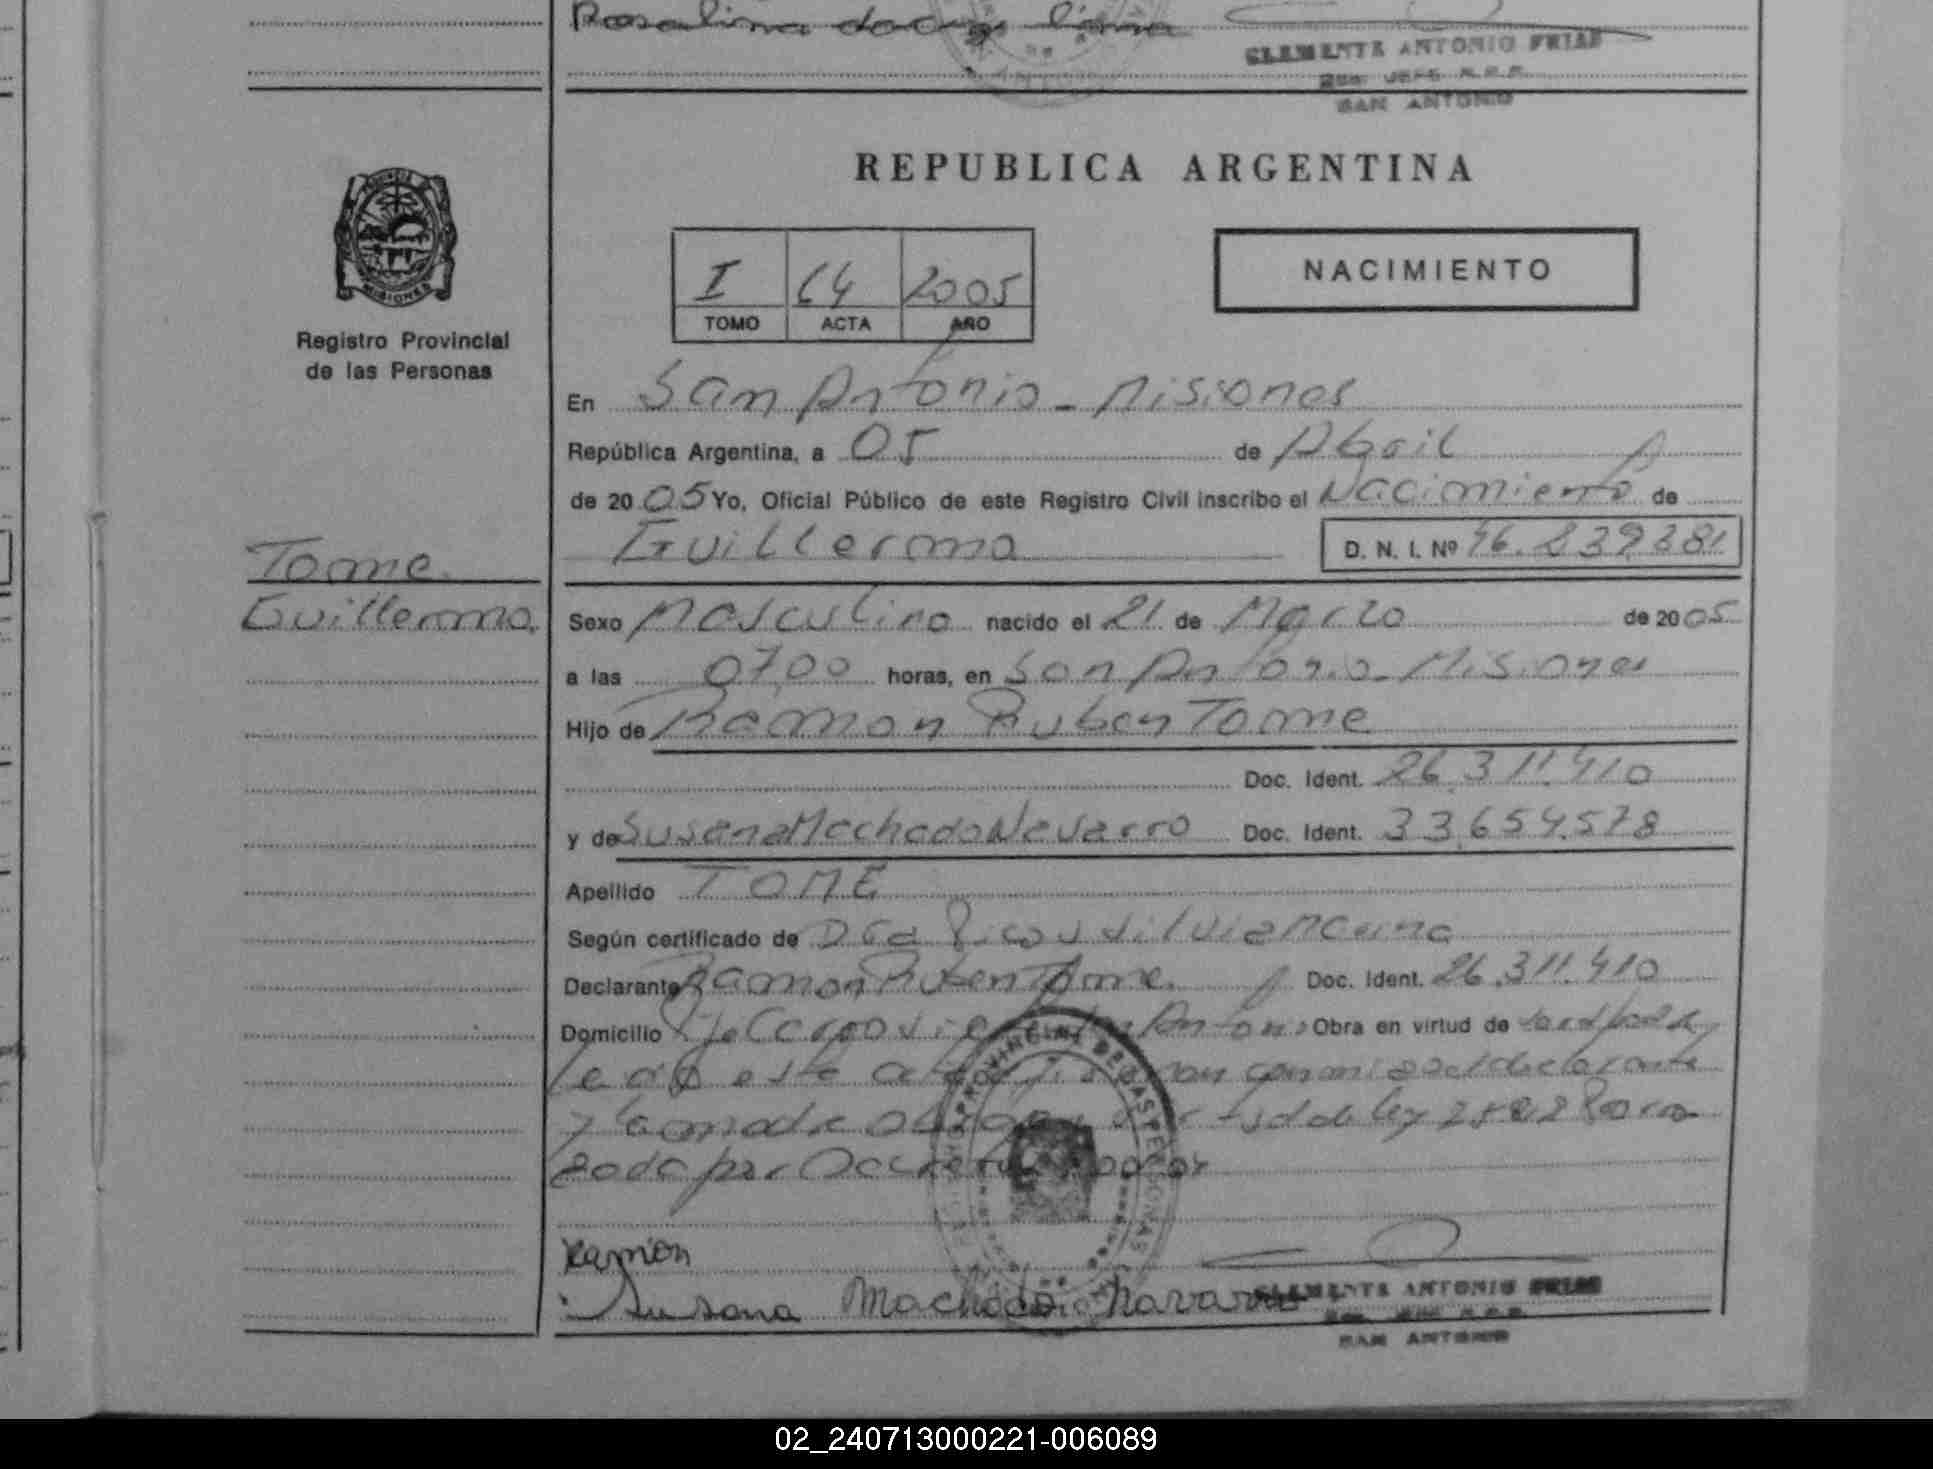 Rosalina
CLEMENTE ANTONIO FRIAS
SAN ANTONIO
REPUBLICA ARGENTINA
PROVINCIA DE
MISIONES
Registro Provincial
de las Personas
I 64 2005
TOMO ACTA AÑO
NACIMIENTO
En San Antonio - Misiones
República Argentina, a 05 de Abril
de 2005 Yo, Oficial Público de este Registro Civil inscribo el Nacimiento de
Guillermo D. N. I. Nº 46.839.381
Tome
Guillermo.
Sexo Masculino nacido el 21 de Marzo de 2005
a las 07,00 horas, en San Antonio - Misiones
Hijo de Ramon Ruben Tome
Doc. Ident. 26.311.410
y de Susana Machado Navarro Doc. Ident. 33.654.578
Apellido TOME
Según certificado de Dra
Declarante Ramon Ruben Tome. Doc. Ident. 26.311.410
Domicilio San Antonio Obra en virtud de
el declarante
y la madre de ley
por
Ramon
Susana Machado Navarro
CLEMENTE ANTONIO FRIAS
SAN ANTONIO
02_240713000221-006089